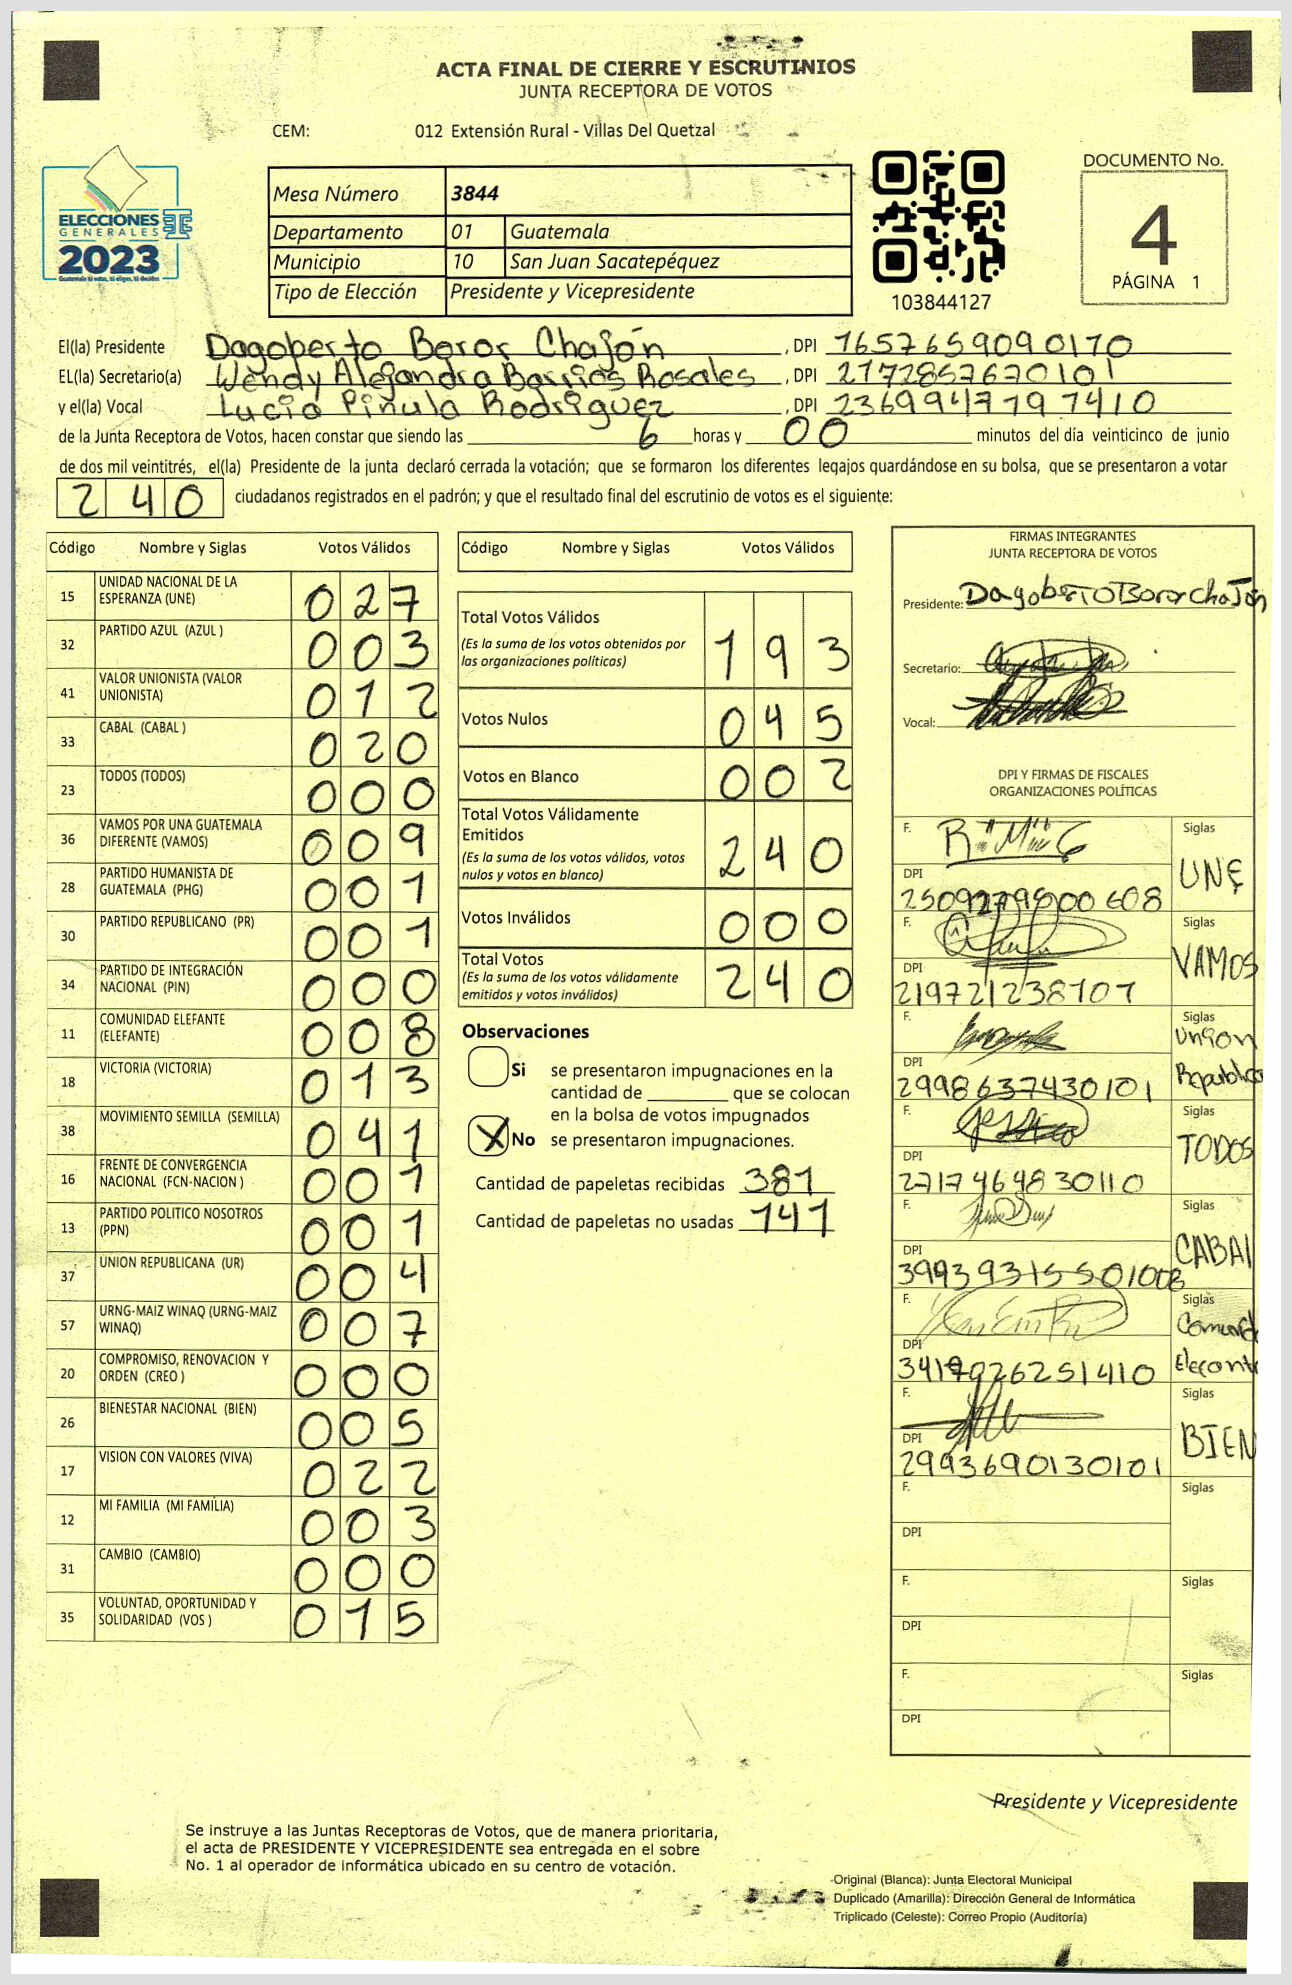 ACTA FINAL DE CIERRE Y ESCRUTINIOS
JUNTA RECEPTORA DE VOTOS
CEM: 012 Extensión Rural - Villas Del Quetzal
ELECCIONES
GENERALES
2023
Guatemala tú votas, tú eliges, tú decides
Mesa Número 3844
Departamento 01 Guatemala
Municipio 10 San Juan Sacatepéquez
Tipo de Elección Presidente y Vicepresidente
103844127
DOCUMENTO No.
4
PÁGINA 1
El(la) Presidente Dagoberto Boror Chajón, DPI 1657659090110
EL(la) Secretario(a) Wendy Alejandra Barrios Rosales, DPI 2172857670101
y el(la) Vocal Lucia Pinula Rodriguez, DPI 2369947797410
de la Junta Receptora de Votos, hacen constar que siendo las 6 horas y 00 minutos del día veinticinco de junio
de dos mil veintitrés, el(la) Presidente de la junta declaró cerrada la votación; que se formaron los diferentes legajos guardándose en su bolsa, que se presentaron a votar
240 ciudadanos registrados en el padrón; y que el resultado final del escrutinio de votos es el siguiente:
Código Nombre y Siglas Votos Válidos
15 UNIDAD NACIONAL DE LA ESPERANZA (UNE) 027
32 PARTIDO AZUL (AZUL ) 003
41 VALOR UNIONISTA (VALOR UNIONISTA) 012
33 CABAL (CABAL ) 020
23 TODOS (TODOS) 000
36 VAMOS POR UNA GUATEMALA DIFERENTE (VAMOS) 009
28 PARTIDO HUMANISTA DE GUATEMALA (PHG) 001
30 PARTIDO REPUBLICANO (PR) 001
34 PARTIDO DE INTEGRACIÓN NACIONAL (PIN) 000
11 COMUNIDAD ELEFANTE (ELEFANTE) 008
18 VICTORIA (VICTORIA) 013
38 MOVIMIENTO SEMILLA (SEMILLA) 041
16 FRENTE DE CONVERGENCIA NACIONAL (FCN-NACION ) 001
13 PARTIDO POLITICO NOSOTROS (PPN) 001
37 UNION REPUBLICANA (UR) 004
57 URNG-MAIZ WINAQ (URNG-MAIZ WINAQ) 007
20 COMPROMISO, RENOVACION Y ORDEN (CREO ) 000
26 BIENESTAR NACIONAL (BIEN) 005
17 VISION CON VALORES (VIVA) 022
12 MI FAMILIA (MI FAMILIA) 003
31 CAMBIO (CAMBIO) 000
35 VOLUNTAD, OPORTUNIDAD Y SOLIDARIDAD (VOS ) 015
Código Nombre y Siglas Votos Válidos
Total Votos Válidos 193
(Es la suma de los votos obtenidos por
las organizaciones políticas)
Votos Nulos 045
Votos en Blanco 002
Total Votos Válidamente
Emitidos 240
(Es la suma de los votos válidos, votos
nulos y votos en blanco)
Votos Inválidos 000
Total Votos 240
(Es la suma de los votos válidamente
emitidos y votos inválidos)
Observaciones
Si se presentaron impugnaciones en la
cantidad de ________ que se colocan
en la bolsa de votos impugnados
X No se presentaron impugnaciones.
Cantidad de papeletas recibidas 381
Cantidad de papeletas no usadas 141
FIRMAS INTEGRANTES
JUNTA RECEPTORA DE VOTOS
Presidente: Dagoberto Boror Chajón
Secretario:
Vocal:
DPI Y FIRMAS DE FISCALES
ORGANIZACIONES POLÍTICAS
F. Siglas UNE
DPI
F. Siglas VAMOS
DPI 219721238101
F. Siglas Union Republica
DPI 2998637430101
F. Siglas TODOS
DPI 2717464830110
F. Siglas CABAL
DPI
F. Siglas
DPI
F. Siglas BIEN
DPI 2993690130101
F. Siglas
DPI
F. Siglas
DPI
F. Siglas
DPI
Presidente y Vicepresidente
Se instruye a las Juntas Receptoras de Votos, que de manera prioritaria,
el acta de PRESIDENTE Y VICEPRESIDENTE sea entregada en el sobre
No. 1 al operador de informática ubicado en su centro de votación.
Original (Blanca): Junta Electoral Municipal
Duplicado (Amarilla): Dirección General de Informática
Triplicado (Celeste): Correo Propio (Auditoría)